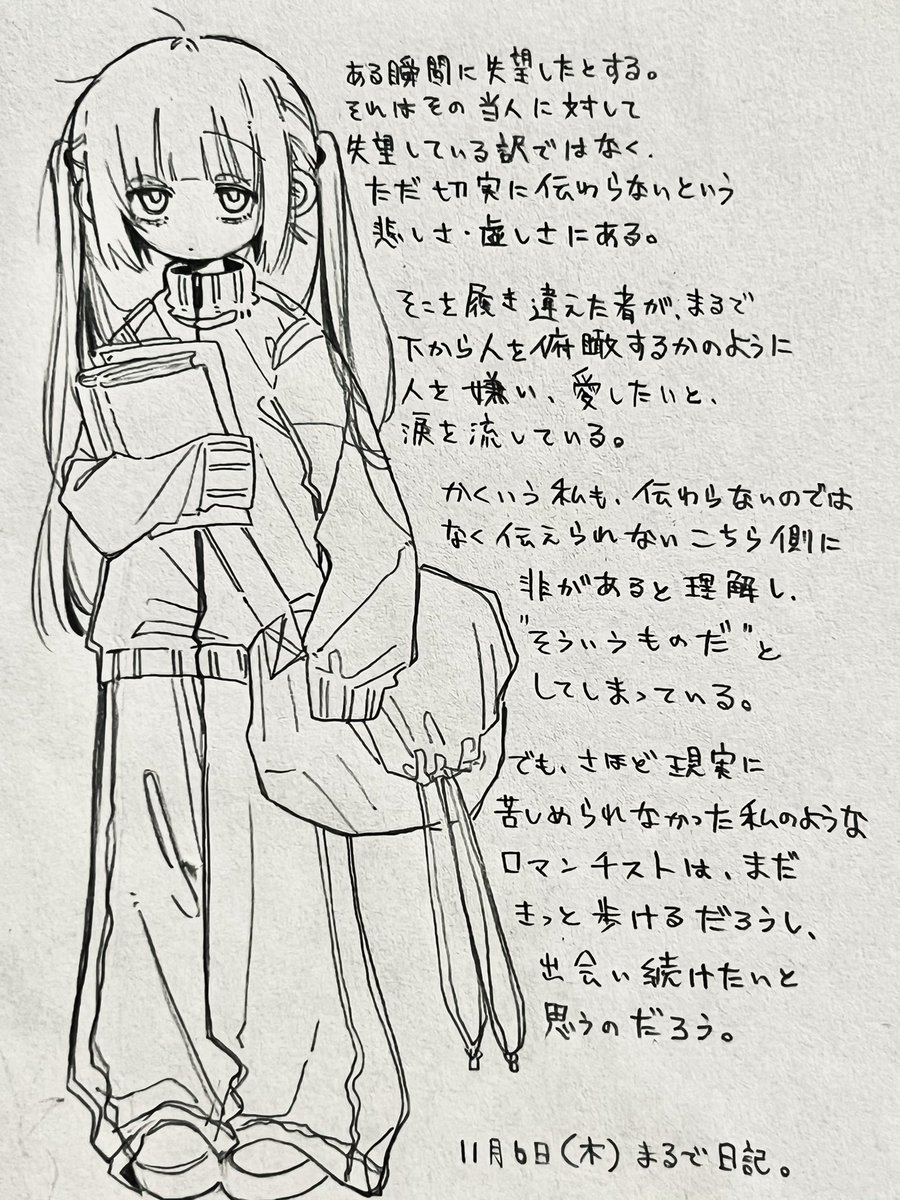 ある瞬間に失望したとする。
それはその当人に対して
失望している訳ではなく、
ただ切実に伝わらないという
悲しさ・虚しさにある。
そこを履き違えた者が、まるで
下から人を俯瞰するかのように
人を嫌い、愛したいと、
涙を流している。
かくいう私も、伝わらないのでは
なく伝えられないこちら側に
非があると理解し、
"そういうものだ"と
してしまっている。
でも、さほど現実に
苦しめられなかった私のような
ロマンチストは、まだ
きっと歩けるだろうし、
出会い続けたいと
思うのだろう。
11月6日(木)まるで日記。